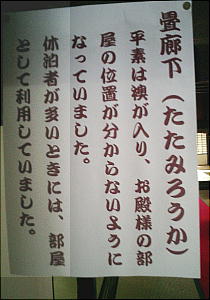 畳廊下（たたみろうか）
平素は襖が入り、お殿様の部
屋の位置が分からないように
なっていました。
休泊者が多いときには、部屋
として利用していました。